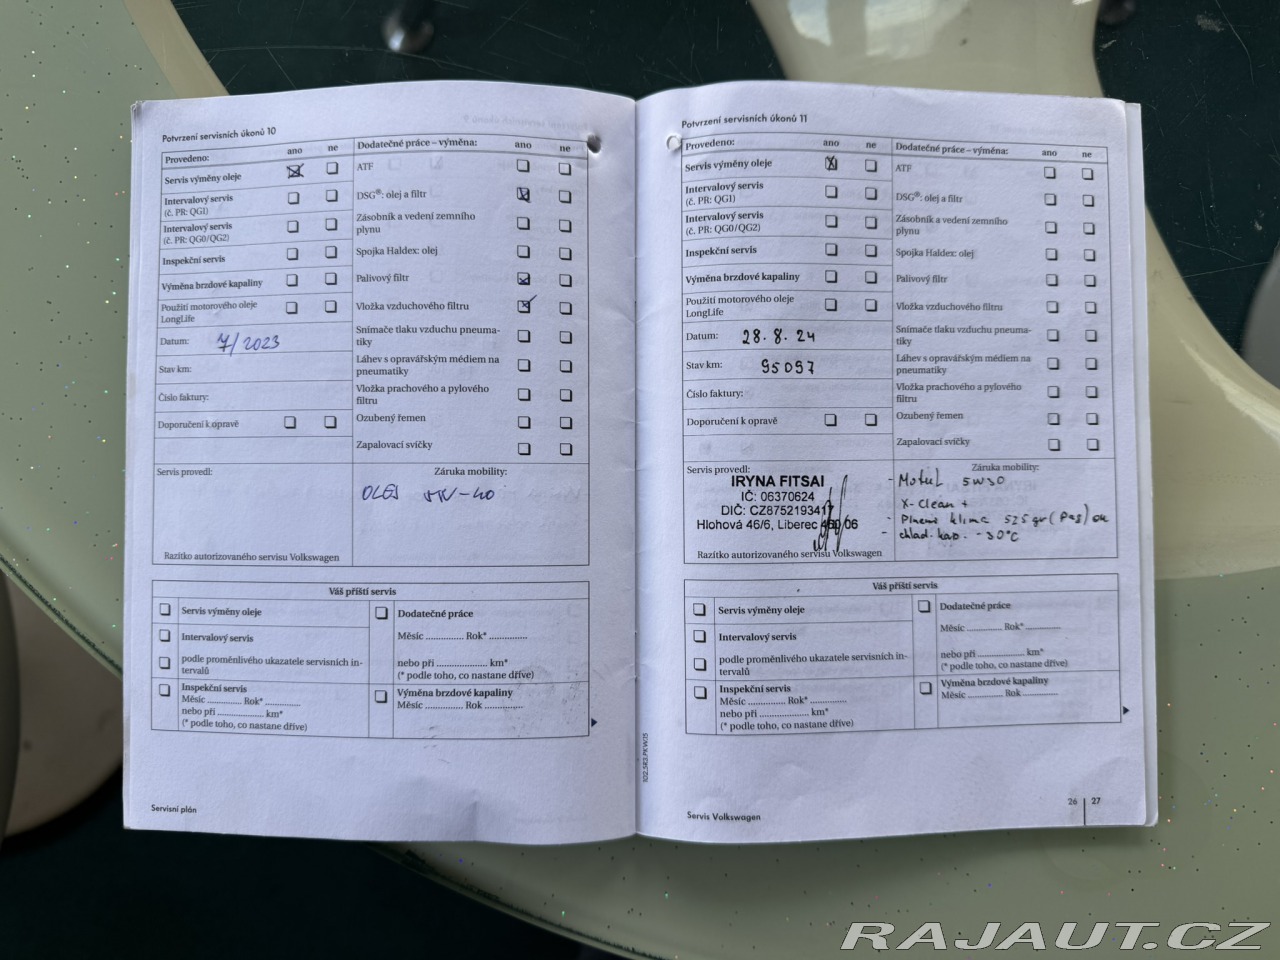 Potvrzení servisních úkonů 10
Provedeno: ano ne
Servis výměny oleje
Intervalový servis
(č. PR: QG1)
Intervalový servis
(č. PR: QG0/QG2)
Inspekční servis
Výměna brzdové kapaliny
Použití motorového oleje
LongLife
Datum: 7/2023
Stav km:
Číslo faktury:
Doporučení k opravě
Dodatečné práce – výměna: ano ne
ATF
DSG®: olej a filtr
Zásobník a vedení zemního
plynu
Spojka Haldex: olej
Palivový filtr
Vložka vzduchového filtru
Snímače tlaku vzduchu pneuma-
tiky
Láhev s opravářským médiem na
pneumatiky
Vložka prachového a pylového
filtru
Ozubený řemen
Zapalovací svíčky
Servis provedl:
Razítko autorizovaného servisu Volkswagen
Záruka mobility:
OLEJ
Váš příští servis
Servis výměny oleje
Intervalový servis
podle proměnlivého ukazatele servisních in-
tervalů
Inspekční servis
Měsíc .............. Rok*
nebo při ...................... km*
(* podle toho, co nastane dříve)
Dodatečné práce
Měsíc .............. Rok* ..............
nebo při ................... km*
(* podle toho, co nastane dříve)
Výměna brzdové kapaliny
Měsíc .............. Rok ..............
Servisní plán
Potvrzení servisních úkonů 11
Provedeno: ano ne
Servis výměny oleje
Intervalový servis
(č. PR: QG1)
Intervalový servis
(č. PR: QG0/QG2)
Inspekční servis
Výměna brzdové kapaliny
Použití motorového oleje
LongLife
Datum: 28.8.24
Stav km: 95097
Číslo faktury:
Doporučení k opravě
Dodatečné práce – výměna: ano ne
ATF
DSG®: olej a filtr
Zásobník a vedení zemního
plynu
Spojka Haldex: olej
Palivový filtr
Vložka vzduchového filtru
Snímače tlaku vzduchu pneuma-
tiky
Láhev s opravářským médiem na
pneumatiky
Vložka prachového a pylového
filtru
Ozubený řemen
Zapalovací svíčky
Servis provedl:
IRYNA FITSAI
IČ: 06370624
DIČ: CZ8752193417
Hlohová 46/6, Liberec 460 06
Razítko autorizovaného servisu Volkswagen
Záruka mobility:
- Motul 5W30
X-Clean +
- Plnění klima 525 gr (Pag) ok
- chlad. kap. -30°C
Váš příští servis
Servis výměny oleje
Intervalový servis
podle proměnlivého ukazatele servisních in-
tervalů
Inspekční servis
Měsíc .............. Rok* ..............
nebo při ...................... km*
(* podle toho, co nastane dříve)
Dodatečné práce
Měsíc ............. Rok* .............
nebo při ................... km*
(* podle toho, co nastane dříve)
Výměna brzdové kapaliny
Měsíc ............. Rok .............
Servis Volkswagen
26 27
RAJAUT.CZ